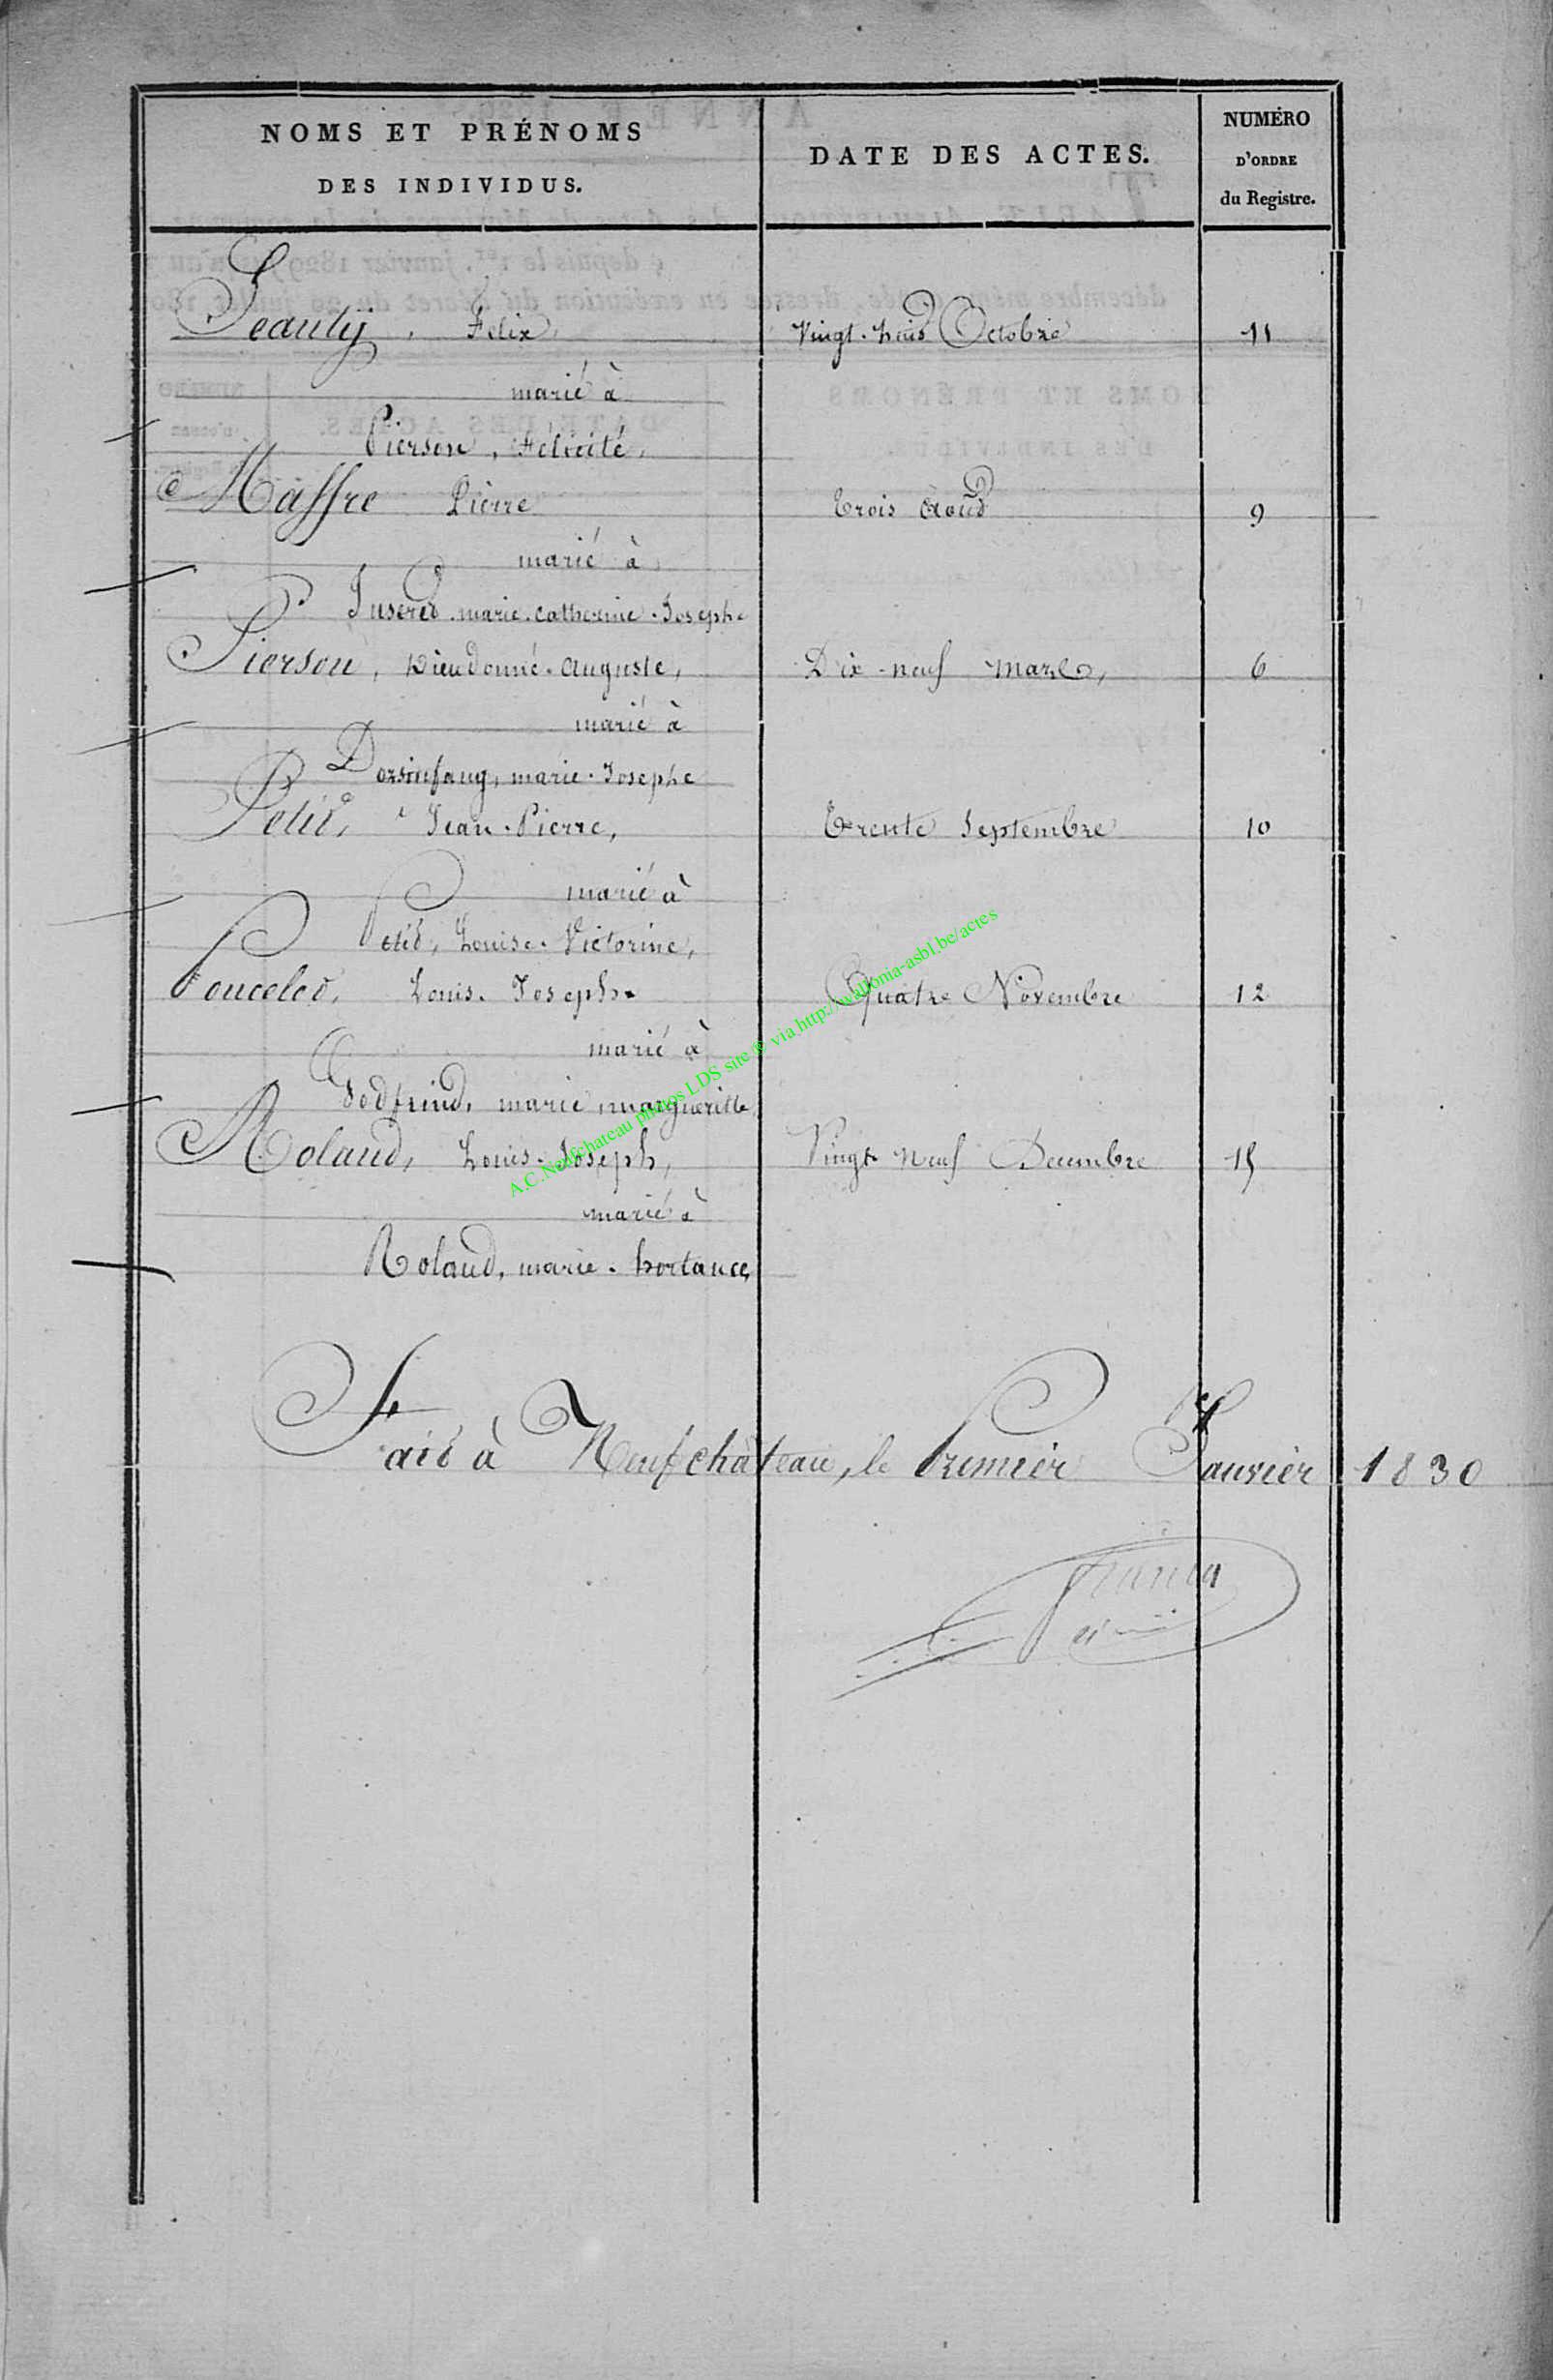 NOMS ET PRÉNOMS
DES INDIVIDUS.
DATE DES ACTES.
NUMÉRO
D'ORDRE
du Registre.
Jeantÿ, Felix, Vingt-huit Octobre 11
marié à
Pierson, Félicité,
Maffre Pierre Trois Aout 9
marié à
marie. Catherine. Josephe
Pierson, Dieudonné. Auguste, Dix-neuf mars, 6
marié à
Dorsinfang, marie. Josephe
Petit, Jean. Pierre, Trente Septembre 10
marié à
Petit, Louise. Victorine,
Poncelet, Louis. Joseph. Quatre Novembre 12
marié à
Godfrind, marie, margueritte
Roland, Louis. Joseph, Vingt-neuf Decembre 15
marié à
Roland, marie. hortance,
Fait à Neufchâteau, le Premier Janvier 1830
A.C. Neufchateau photos LDS site ® via http://wallonia-asbl.be/actes